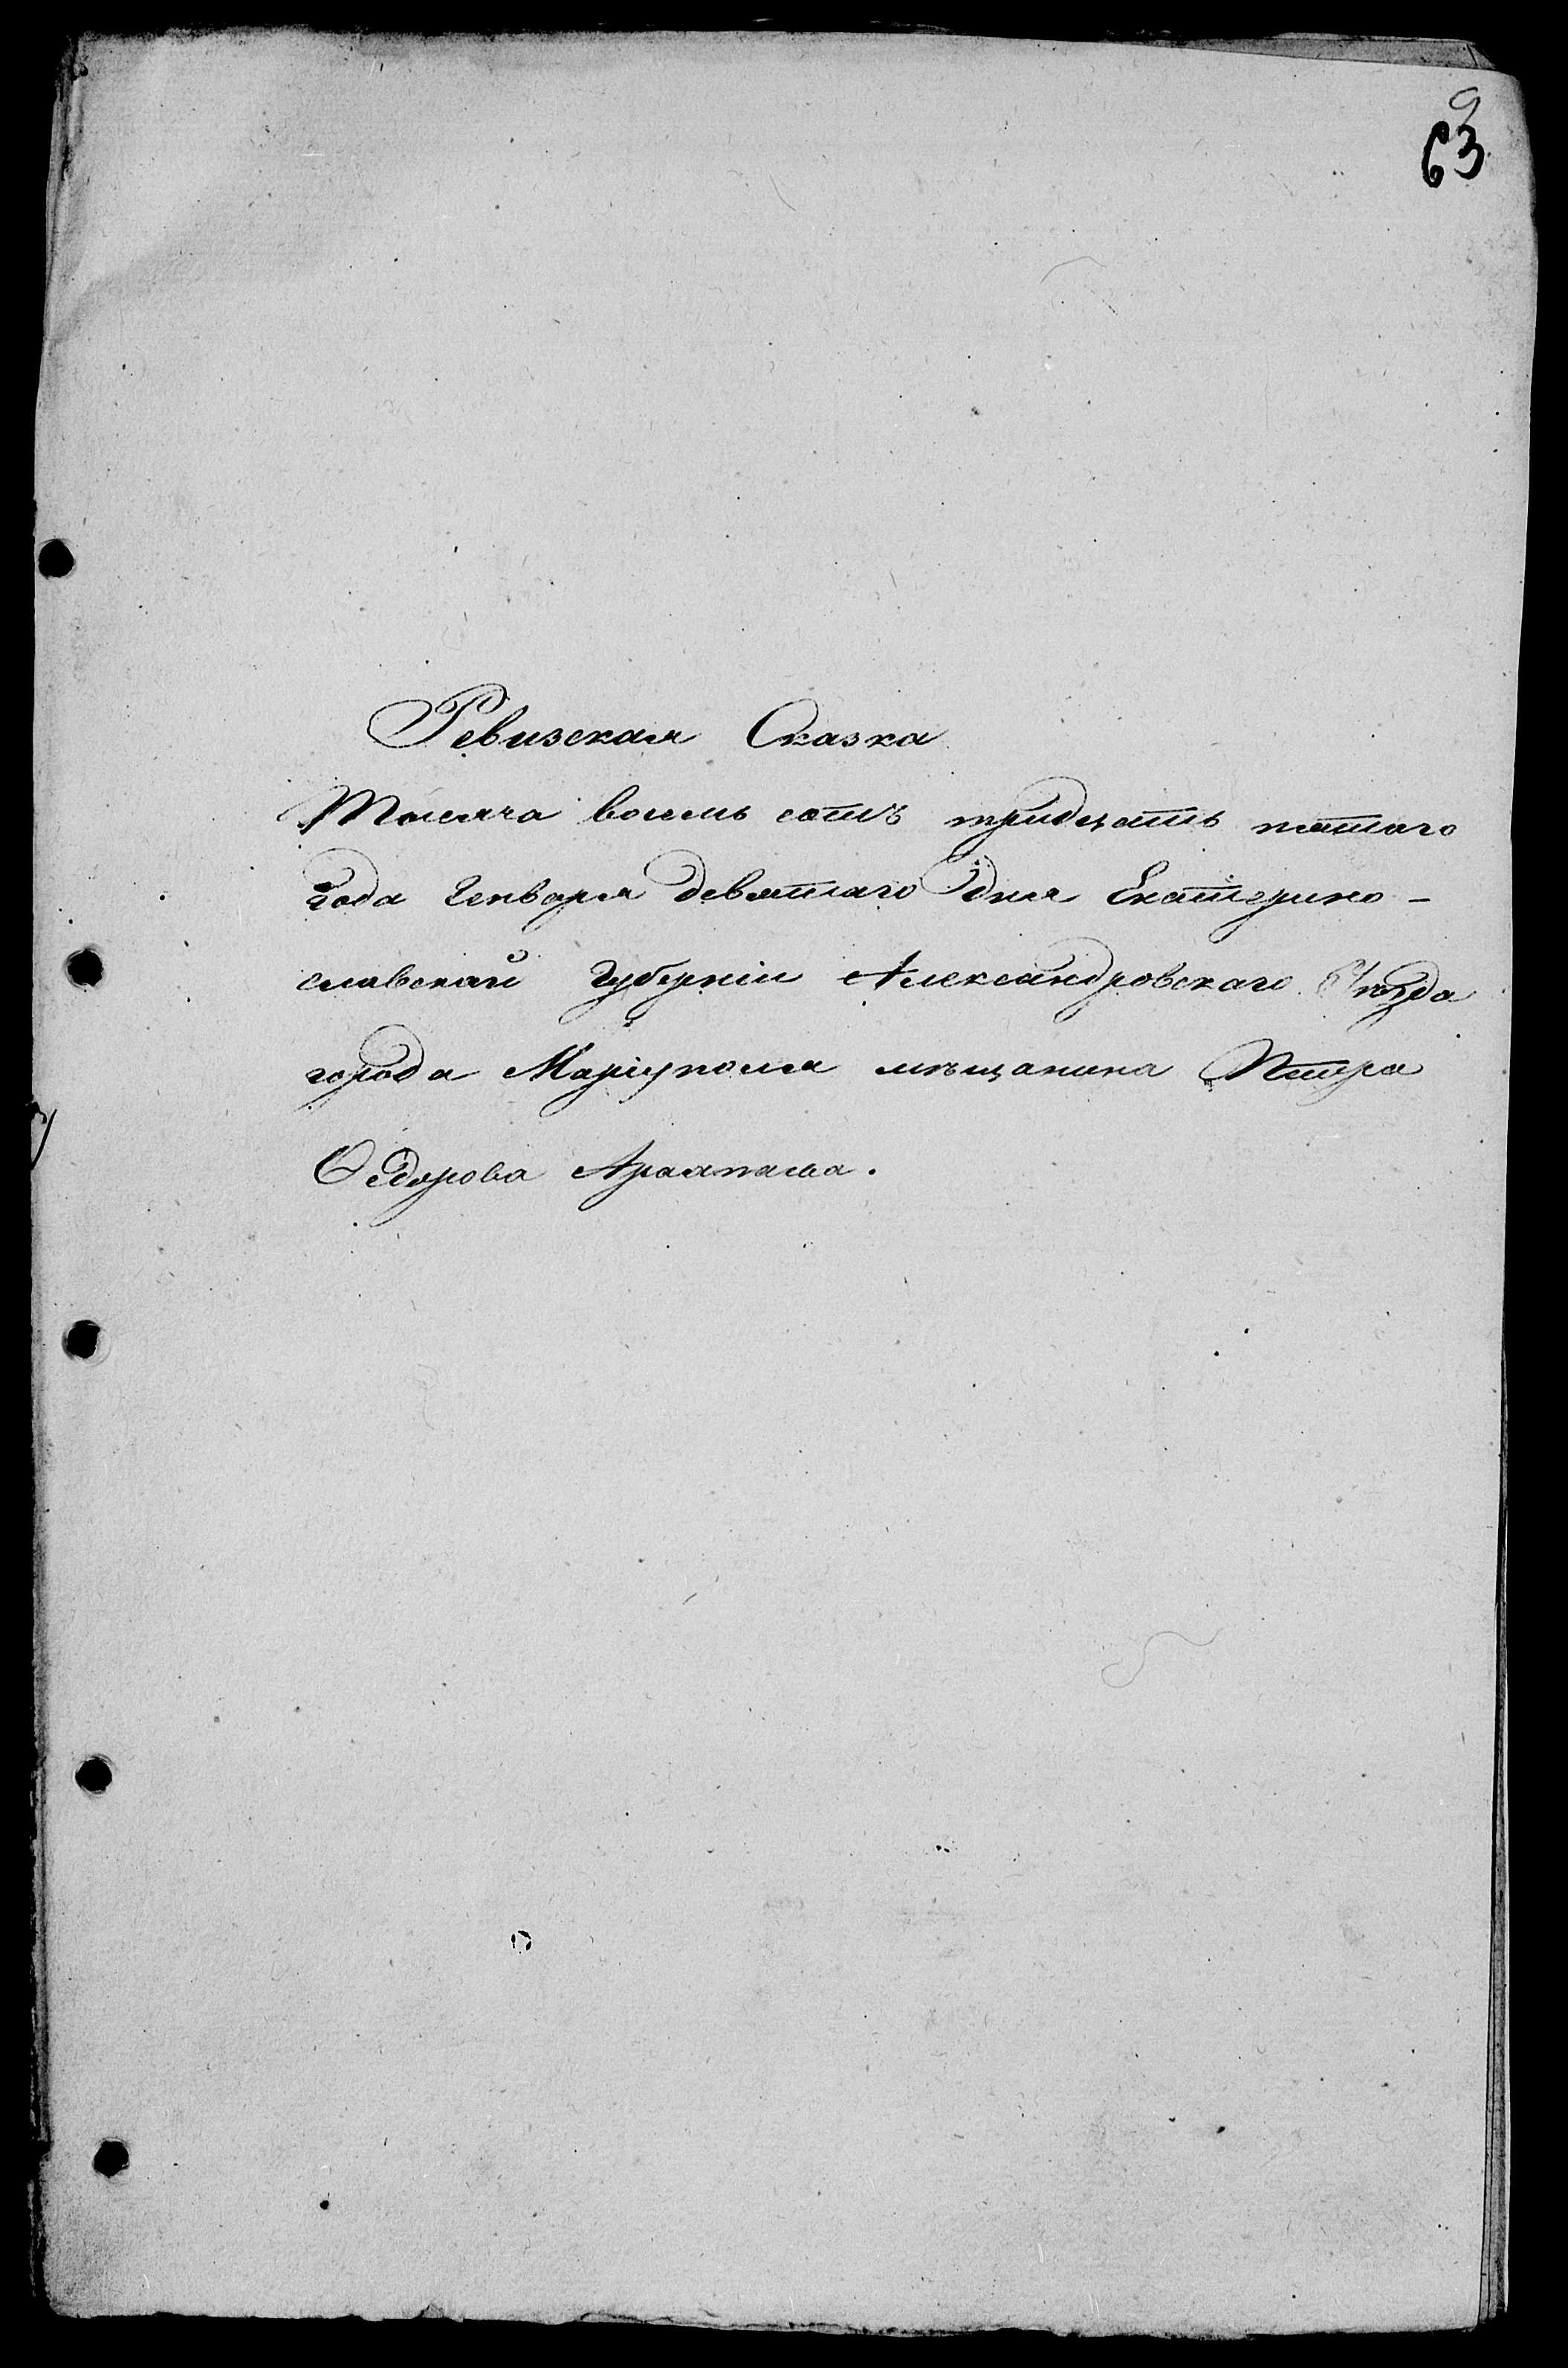 9
63
Ревизская Сказка
Тысяча восемь сотъ тридцать пятаго
года Генваря девятаго дня Екатерино-
славской Губерніи Александровскаго Уѣзда
города Маріуполя мѣщанина Петра
Ѳедорова